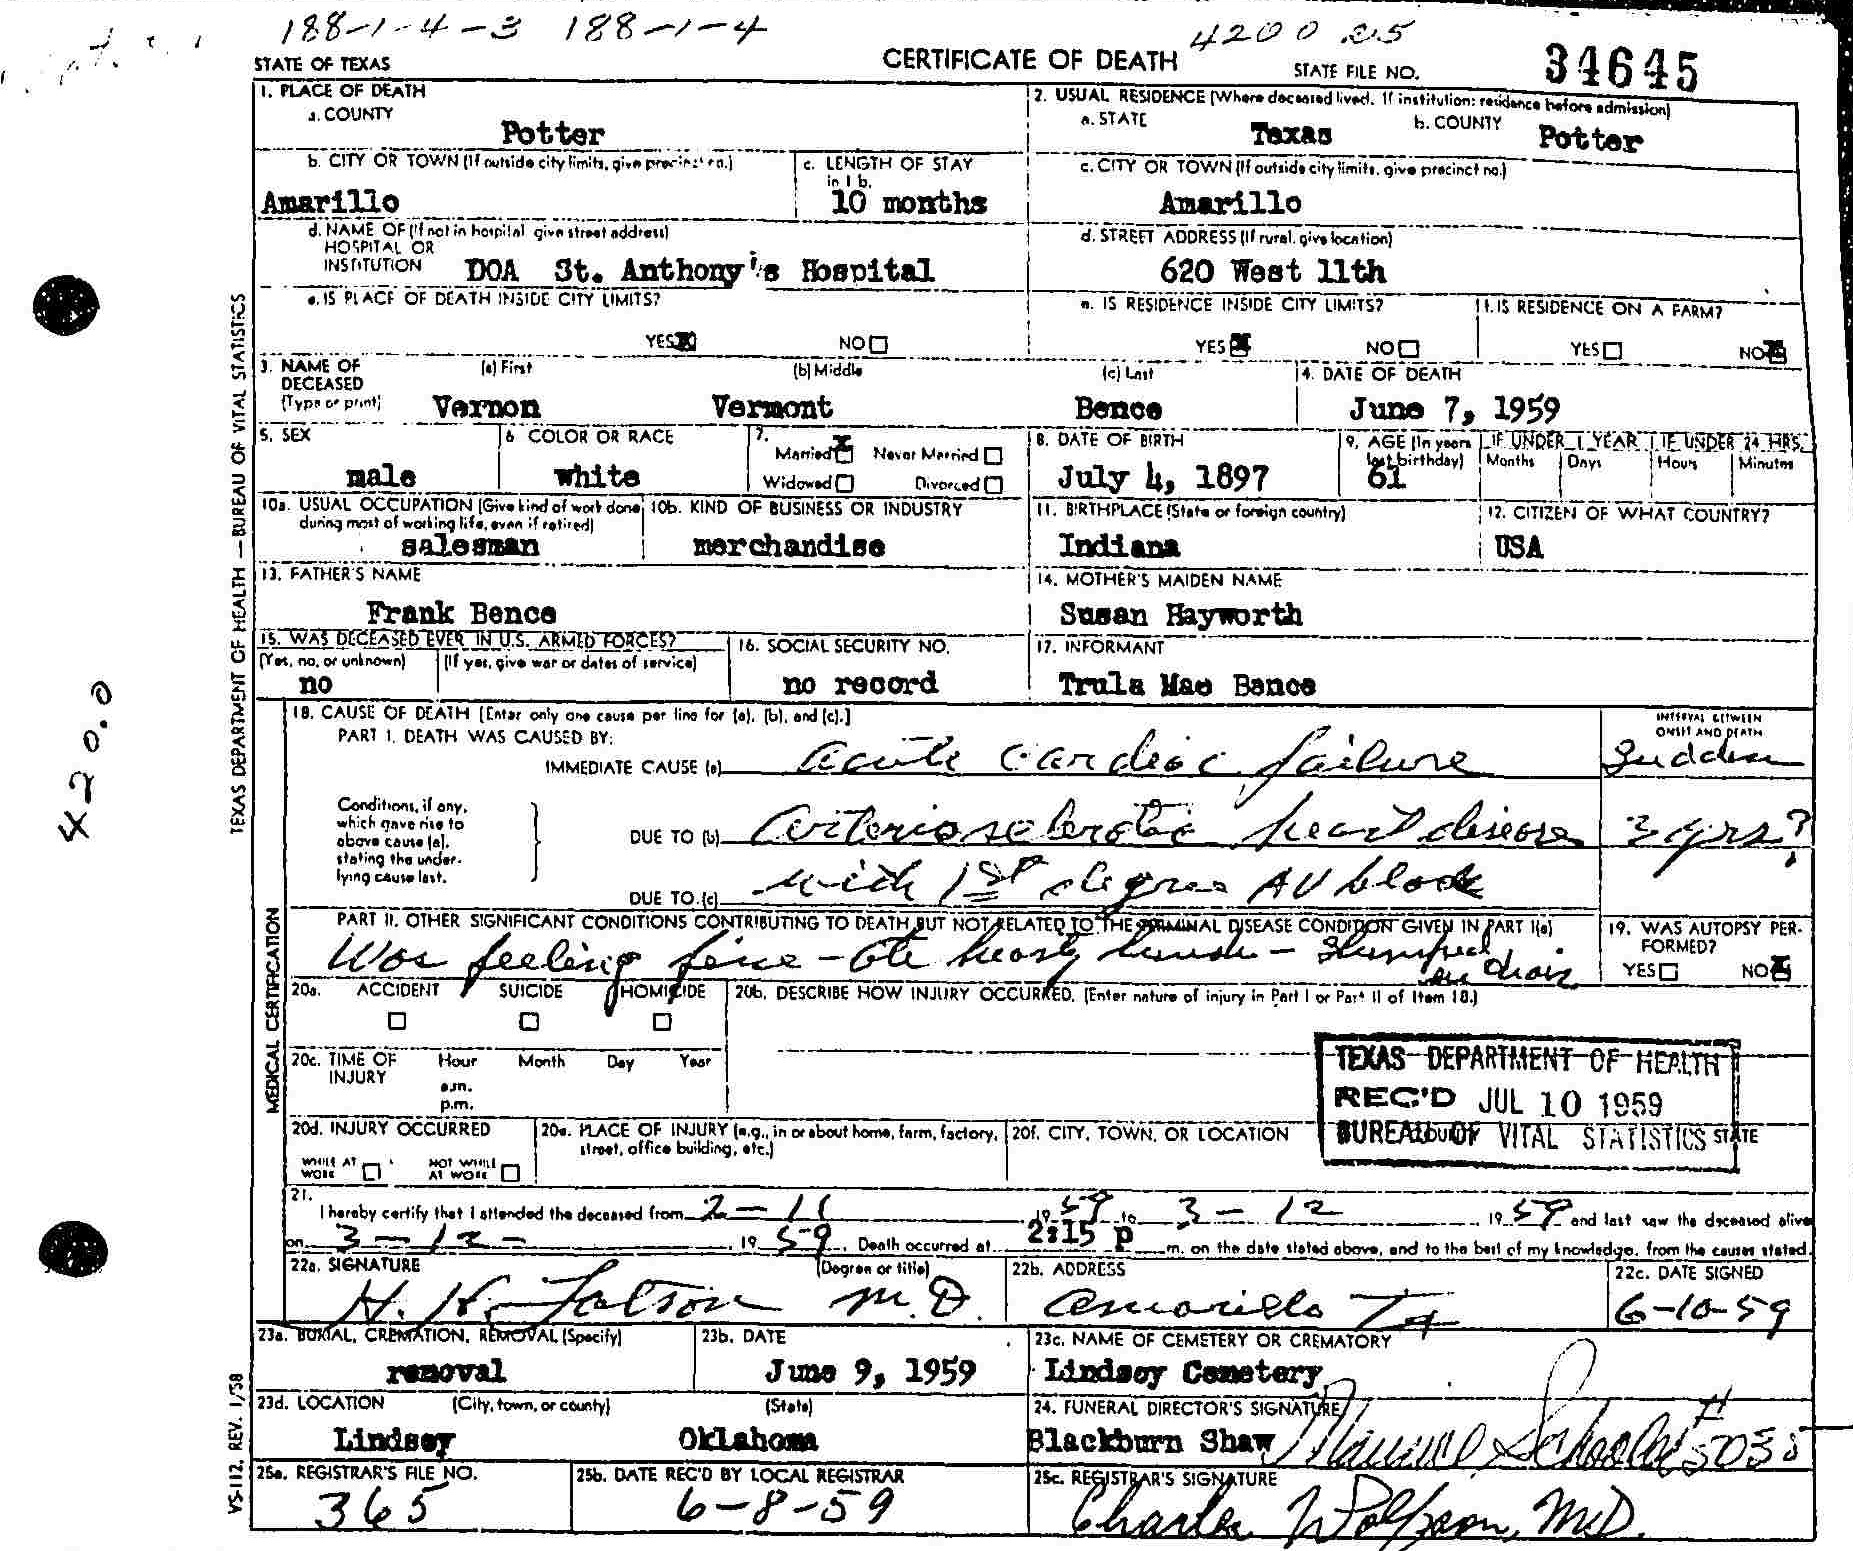 188-1-4-3 188-1-4
4200 25
STATE OF TEXAS
CERTIFICATE OF DEATH
STATE FILE NO. 34645
1. PLACE OF DEATH
a. COUNTY
Potter
2. USUAL RESIDENCE (Where deceased lived. If institution: residence before admission)
a. STATE Texas b. COUNTY Potter
b. CITY OR TOWN (If outside city limits, give precinct no.)
Amarillo
c. LENGTH OF STAY in 1 b.
10 months
c. CITY OR TOWN (If outside city limits, give precinct no.)
Amarillo
d. NAME OF (If not in hospital give street address)
HOSPITAL OR
INSTITUTION DOA St. Anthony's Hospital
d. STREET ADDRESS (If rural, give location)
620 West 11th
e. IS PLACE OF DEATH INSIDE CITY LIMITS?
YES NO
e. IS RESIDENCE INSIDE CITY LIMITS?
YES NO
f. IS RESIDENCE ON A FARM?
YES NO
3. NAME OF DECEASED (Type or print)
(a) First (b) Middle (c) Last
Vernon Vermont Bence
4. DATE OF DEATH
June 7, 1959
5. SEX
male
6 COLOR OR RACE
white
7.
Married Never Married
Widowed Divorced
8. DATE OF BIRTH
July 4, 1897
9. AGE (In years last birthday)
61
IF UNDER 1 YEAR IF UNDER 24 HRS.
Months Days Hours Minutes
10a. USUAL OCCUPATION (Give kind of work done during most of working life, even if retired)
salesman
10b. KIND OF BUSINESS OR INDUSTRY
merchandise
11. BIRTHPLACE (State or foreign country)
Indiana
12. CITIZEN OF WHAT COUNTRY?
USA
13. FATHER'S NAME
Frank Bence
14. MOTHER'S MAIDEN NAME
Susan Hayworth
15. WAS DECEASED EVER IN U.S. ARMED FORCES?
(Yes, no, or unknown) (If yes, give war or dates of service)
no
16. SOCIAL SECURITY NO.
no record
17. INFORMANT
Trula Mae Bence
18. CAUSE OF DEATH [Enter only one cause per line for (a), (b), and (c).]
PART I. DEATH WAS CAUSED BY:
IMMEDIATE CAUSE (a) acute cardiac failure
INTERVAL BETWEEN
ONSET AND DEATH
Sudden
Conditions, if any,
which gave rise to
above cause (a),
stating the under-
lying cause last.
DUE TO (b) Arteriosclerotic heart disease
3 yrs?
DUE TO (c) with 1st degree AV block
PART II. OTHER SIGNIFICANT CONDITIONS CONTRIBUTING TO DEATH BUT NOT RELATED TO THE TERMINAL DISEASE CONDITION GIVEN IN PART I(a)
Was feeling fine - ate hearty lunch - slumped in chair
19. WAS AUTOPSY PER-
FORMED?
YES NO
20a. ACCIDENT SUICIDE HOMICIDE
20b. DESCRIBE HOW INJURY OCCURRED. (Enter nature of injury in Part I or Part II of Item 18.)
20c. TIME OF INJURY
Hour Month Day Year
a.m.
p.m.
TEXAS DEPARTMENT OF HEALTH
REC'D JUL 10 1959
BUREAU OF VITAL STATISTICS
20d. INJURY OCCURRED
WHILE AT WORK NOT WHILE AT WORK
20e. PLACE OF INJURY (e.g., in or about home, farm, factory, street, office building, etc.)
20f. CITY, TOWN, OR LOCATION STATE
21.
I hereby certify that I attended the deceased from 2-11 1959 to 3-12 1959 and last saw the deceased alive
on 3-12- 1959. Death occurred at 2:15 p m. on the date stated above, and to the best of my knowledge, from the causes stated.
22a. SIGNATURE (Degree or title)
H. H. M.D.
22b. ADDRESS
Amarillo Tx
22c. DATE SIGNED
6-10-59
23a. BURIAL, CREMATION, REMOVAL (Specify)
removal
23b. DATE
June 9, 1959
23c. NAME OF CEMETERY OR CREMATORY
Lindsey Cemetery
23d. LOCATION (City, town, or county) (State)
Lindsey Oklahoma
24. FUNERAL DIRECTOR'S SIGNATURE
Blackburn Shaw # 5035
25a. REGISTRAR'S FILE NO.
365
25b. DATE REC'D BY LOCAL REGISTRAR
6-8-59
25c. REGISTRAR'S SIGNATURE
Charles Wolfson, M.D.
TEXAS DEPARTMENT OF HEALTH — BUREAU OF VITAL STATISTICS
MEDICAL CERTIFICATION
VS-112, REV. 1/58
420.0